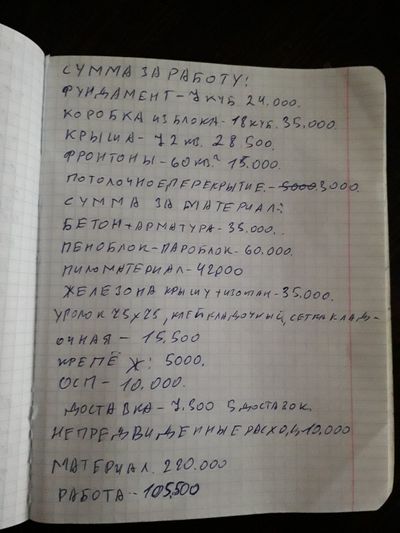 СУММА ЗА РАБОТУ!
ФУНДАМЕНТ-7 КУБ 24.000.
КОРОБКА ИЗ БЛОКА-18 КУБ. 35.000.
КРЫША-72 КВ. 28500.
ФРОНТОНЫ-60 КВ.² 15.000.
ПОТОЛОЧНОЕ ПЕРЕКРЫТИЕ.-5000 3000.
СУММА ЗА МАТЕРИАЛ:
БЕТОН+АРМАТУРА-35.000..
ПЕНОБЛОК-ПАРОБЛОК-60.000.
ПИЛОМАТЕРИАЛ-42000
ЖЕЛЕЗО НА КРЫШУ+ИЗОСПАН-35.000.
УГОЛОК 75х75, КЛЕЙ КЛАДОЧНЫЙ, СЕТКА КЛАД-
ОЧНАЯ-15.500
КРЕПЁЖ: 5000.
ОСП-10,000.
ДОСТАВКА-7.500 5 ДОСТАВОК.
НЕПРЕДВИДЕННЫЕ РАСХОД 10.000
МАТЕРИАЛ. 220.000
РАБОТА-105500